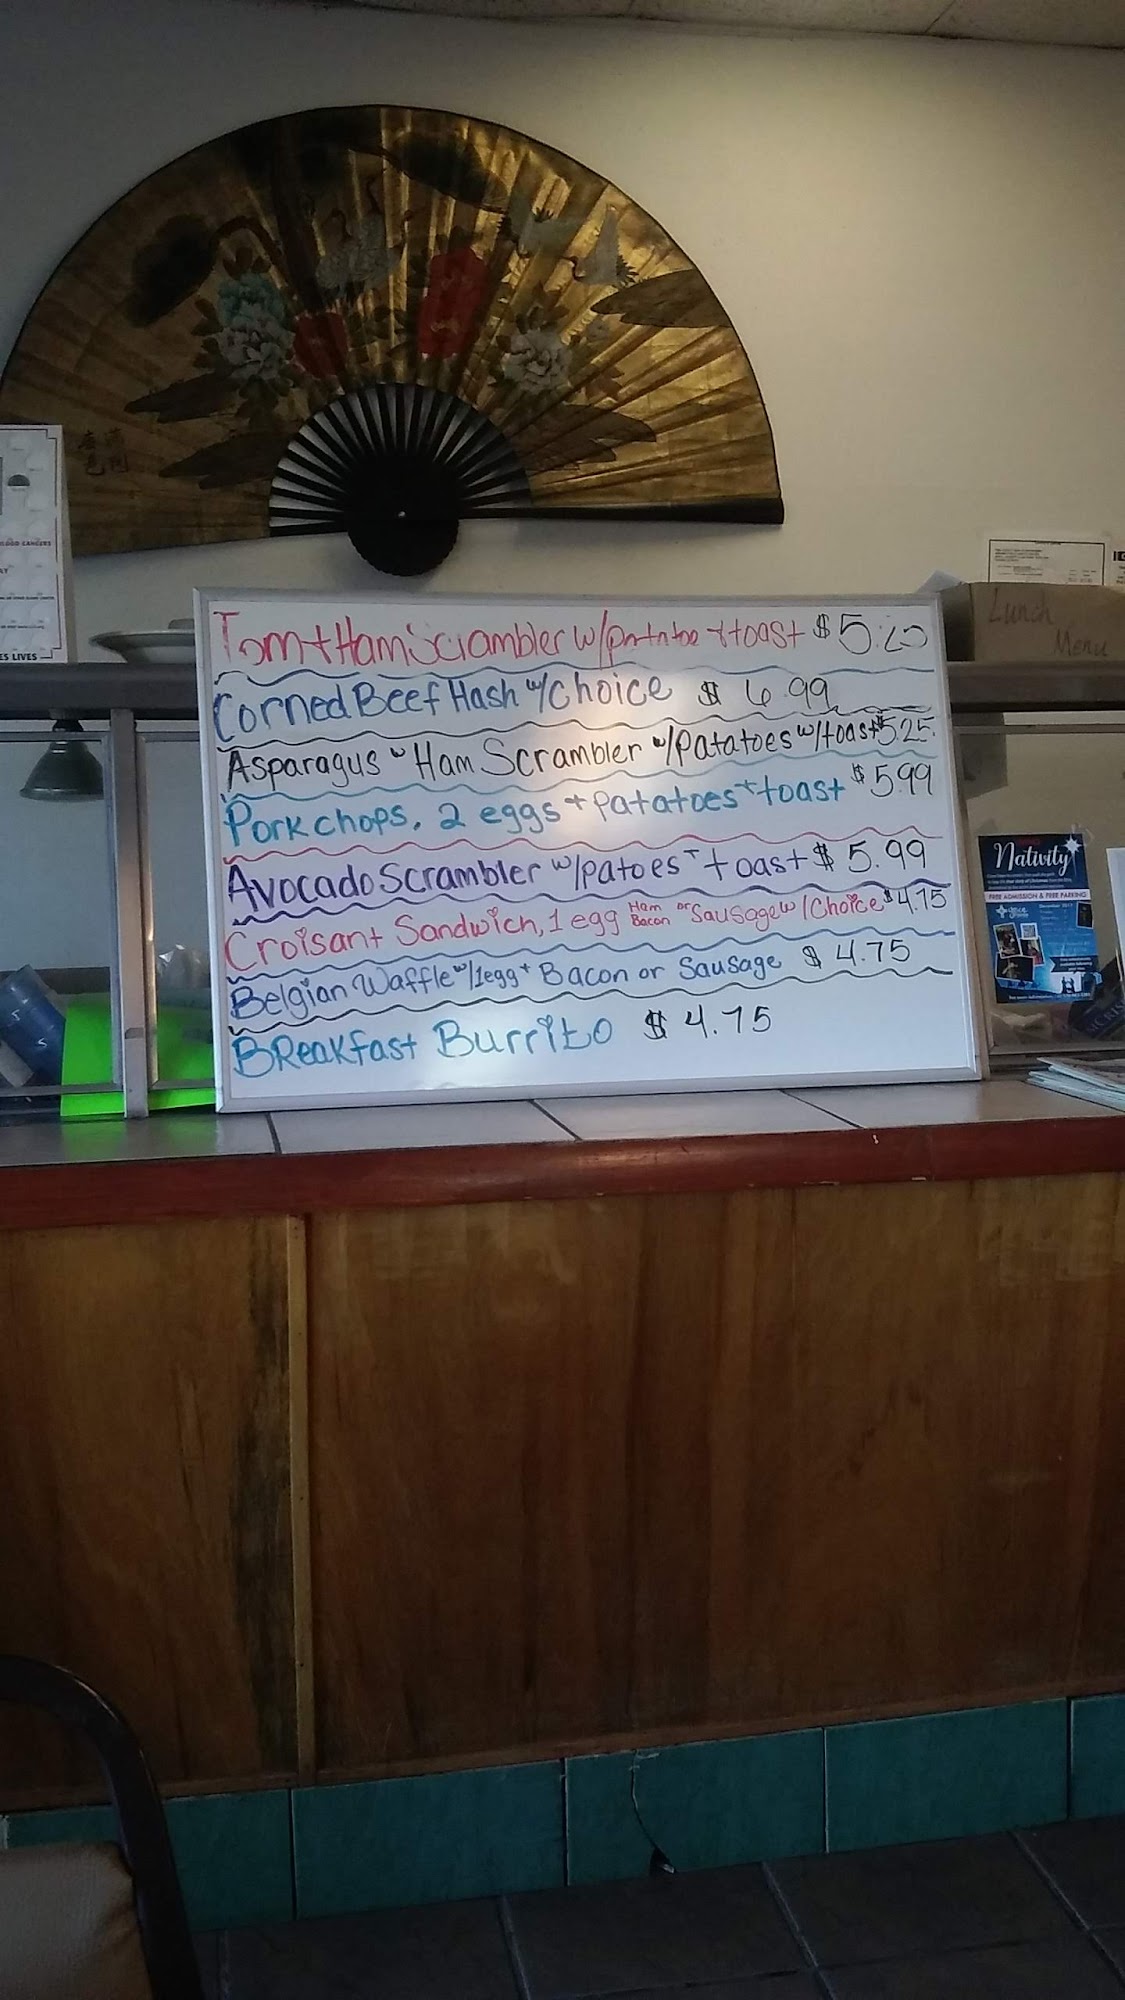 Tom + Ham Scrambler w/ + toast $5.
Corned Beef Hash w/Choice $6.99
Asparagus w Ham Scrambler w/patatoes w/toast $5.25
Pork chops, 2 eggs + patatoes + toast $5.99
Avocado Scrambler w/patoes + toast $5.99
Croisant Sandwich, 1 egg Ham or Bacon Sausage w/Choice $4.75
Belgian Waffle w/1egg + Bacon or Sausage $4.75
Breakfast Burrito $4.75
Lunch
Menu
Nativity
FREE ADMISSION & FREE PARKING
LOOD CANCERS
ES LIVES